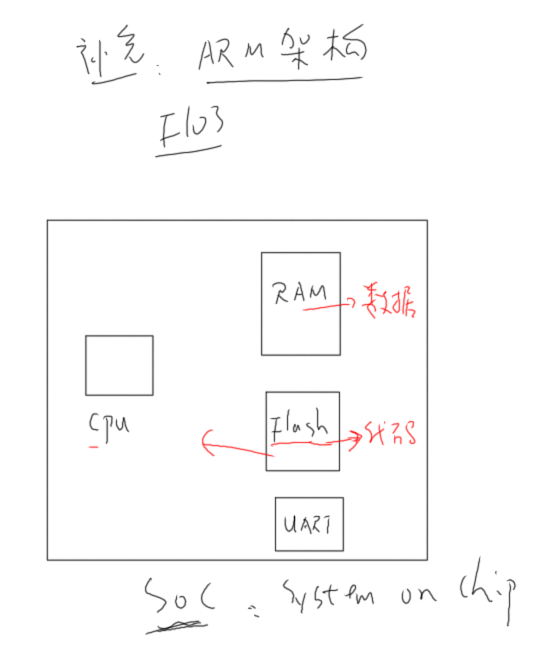 补充: ARM架构
F103
RAM
数据
CPU
Flash
代码
UART
SOC: System on chip